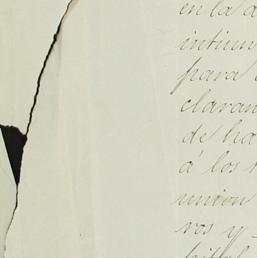 en la a
intium
para
claran
de ha
á los
union
ros y